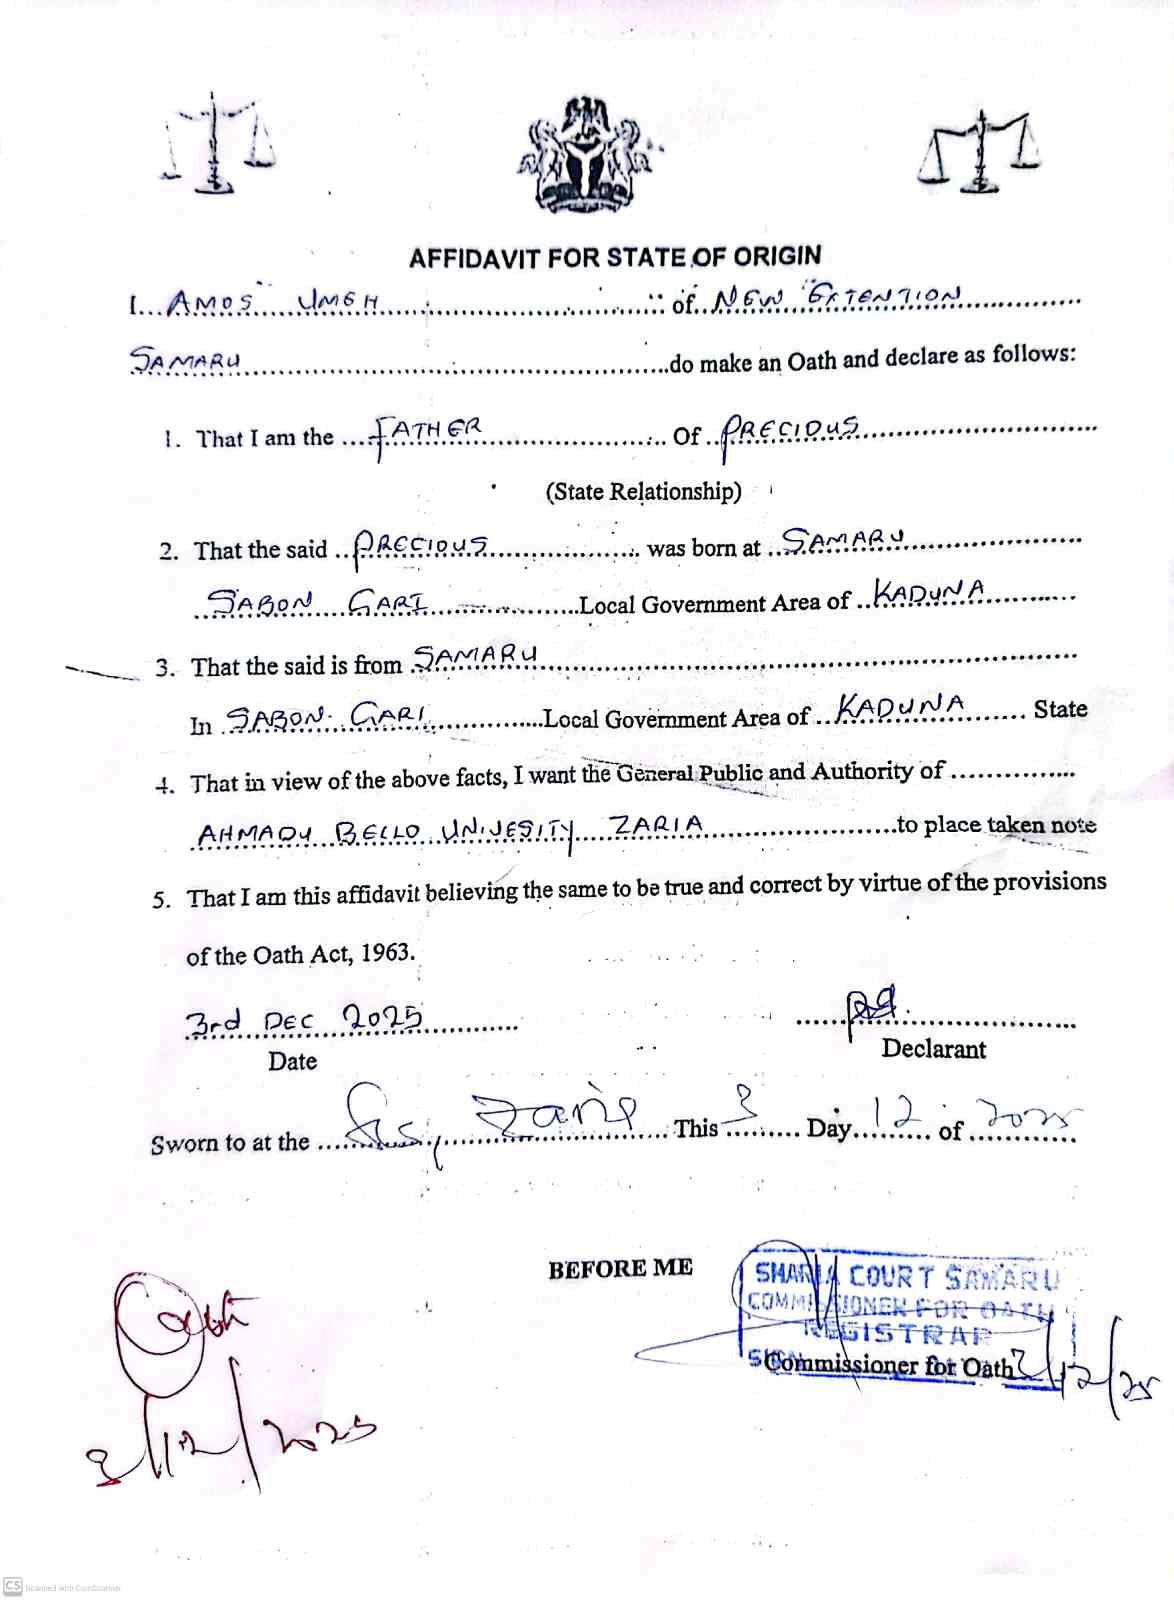 AFFIDAVIT FOR STATE OF ORIGIN
I... AMOS UMEH .......... of NEW EXTENTION ..........
SAMARU ..........do make an Oath and declare as follows:
1. That I am the .... FATHER .......... Of .. PRECIOUS ..........
(State Relationship)
2. That the said .. PRECIOUS .......... was born at .. SAMARU ..........
SABON GARI ..........Local Government Area of .. KADUNA ..........
3. That the said is from SAMARU ..........
In . SABON GARI ..........Local Government Area of .. KADUNA .......... State
4. That in view of the above facts, I want the General Public and Authority of ..........
AHMADU BELLO UNIVESITY ZARIA ..........to place taken note
5. That I am this affidavit believing the same to be true and correct by virtue of the provisions
of the Oath Act, 1963.
3rd DEC 2025 ..........
Date
Declarant
Sworn to at the .......... Zaria .......... This 3 ....... Day 12 ....... of 2025 ..........
BEFORE ME
SHARIA COURT SAMARU
COMMISSIONER FOR OATH
REGISTRAR
Commissioner for Oath
3/12/25
3/12/2025
CS Scanned with CamScanner